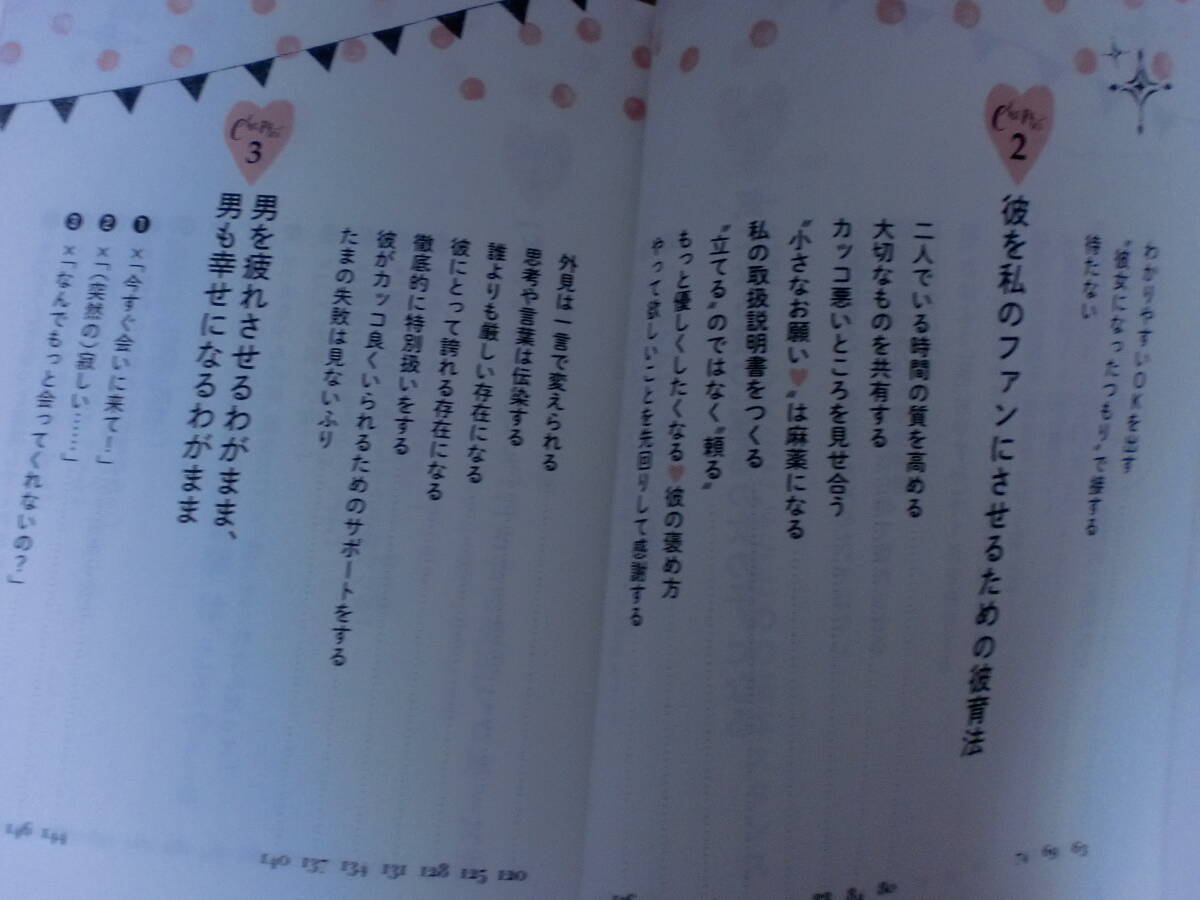 わかりやすいOKを出す
“彼女になったつもり”で接する
待たない
63
69
74
Chapter 2
彼を私のファンにさせるための彼育法
二人でいる時間の質を高める
大切なものを共有する
カッコ悪いところを見せ合う
“小さなお願い♥”は麻薬になる
私の取扱説明書をつくる
“立てる”のではなく“頼る”
もっと優しくしたくなる♥彼の褒め方
やって欲しいことを先回りして感謝する
80
84
外見は一言で変えられる
思考や言葉は伝染する
誰よりも厳しい存在になる
彼にとって誇れる存在になる
徹底的に特別扱いをする
彼がカッコ良くいられるためのサポートをする
たまの失敗は見ないふり
120
125
128
131
134
137
140
Chapter 3
男を疲れさせるわがまま、
男も幸せになるわがまま
❶ ×「今すぐ会いに来て！」
❷ ×「（突然の）寂しい……」
❸ ×「なんでもっと会ってくれないの？」
144
146